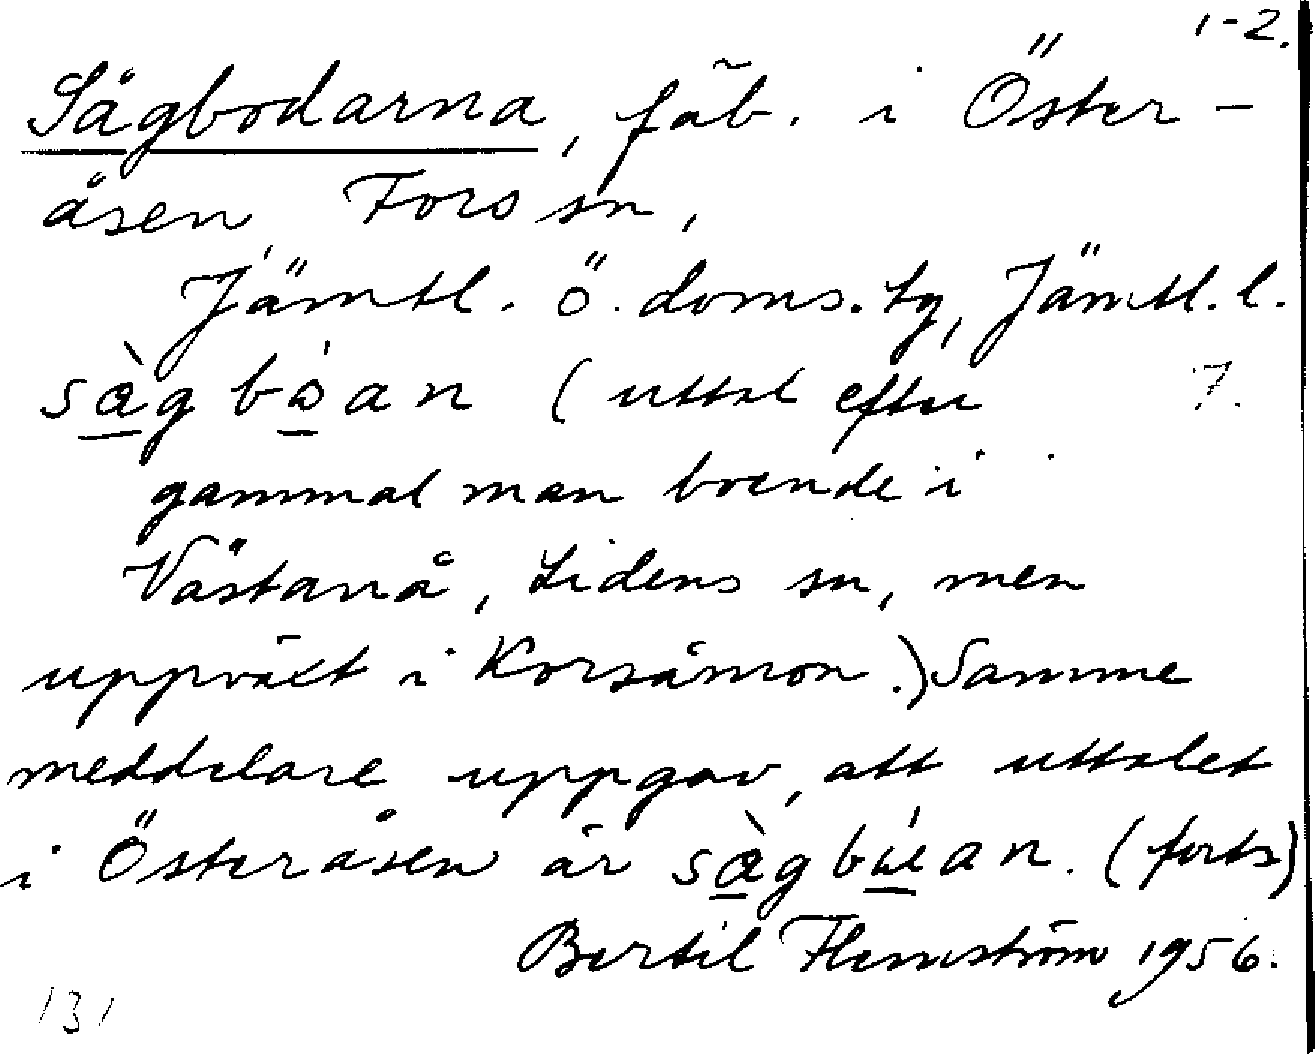 1-2.
Sågbodarna, fäb. i Öster-
åsen, Fors sn,
Jämtl. ö. doms.tg, Jämtl. l.
sàg bóan (uttal efter 7.
gammal man boende i
Västanå, Lidens sn, men
uppväxt i Korsåmon.) Samme
meddelare uppgav, att uttalet
i Österåsen är sàgbúan. (forts)
Bertil Flemström 1956.
131